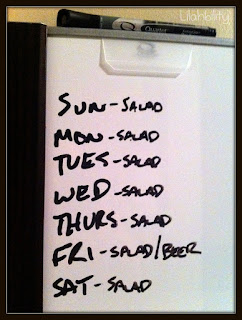 Lilahbility
Quartet
SUN-SALAD
MON-SALAD
TUES-SALAD
WED-SALAD
THURS-SALAD
FRI-SALAD/BEER
SAT-SALAD